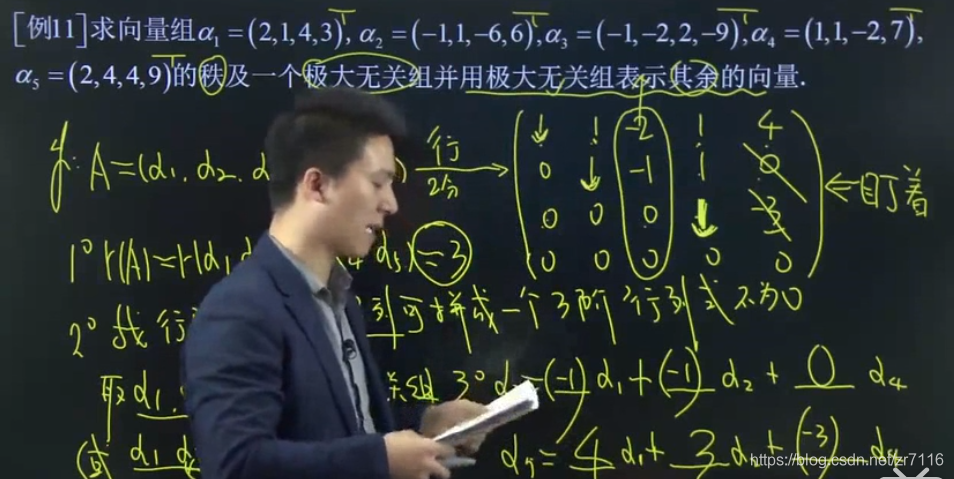 [例11]求向量组α₁ = (2,1,4,3)ᵀ, α₂ = (-1,1,-6,6)ᵀ, α₃ = (-1,-2,2,-9)ᵀ, α₄ = (1,1,-2,7)ᵀ,
α₅ = (2,4,4,9)ᵀ的秩及一个极大无关组并用极大无关组表示其余的向量.
A=(α₁.α₂. 行 1 1 -2 1 4
0 1 -1 1 0
0 0 0 1 -3 ←盯着
0 0 0 0 0
1° r(A)=r(α₁ α₅)=3
2° 找 行 列可拼成一个3阶行列式不为0
取α₁. 关组 3° =(-1)α₁+(-1)α₂+0α₄
(或 α₁ α₅=4α₁+3α₂+(-3)α₄
https://blog.csdn.net/zr7116